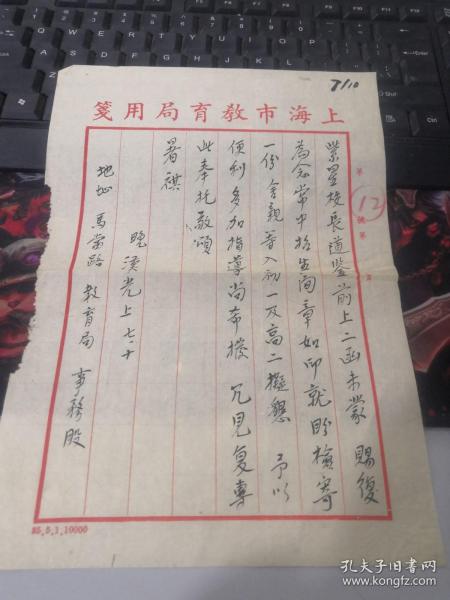 7/10
上海市教育局用箋
第 12 號 第 頁
紫星校長道鑒前上二函未蒙 賜復
為念常中招生簡章如印就盼檢寄
一份舍親等入初一及高二擬懇 予以
便利多加指導尚希撥冗見复專
此奉托敬頌
暑祺
晚漢光上七、十
地址 馬當路 教育局 事務股
35.5.1.10000
孔夫子旧书网
www.kongfz.com